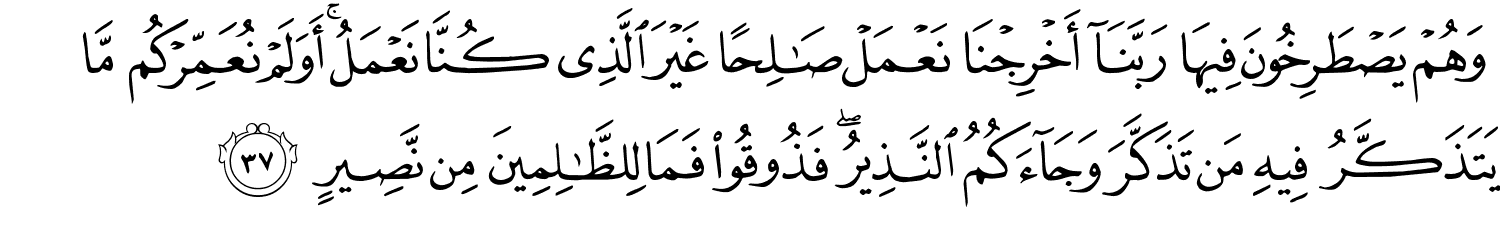 وَهُمْ يَصْطَرِخُونَ فِيهَا رَبَّنَآ أَخْرِجْنَا نَعْمَلْ صَـٰلِحًا غَيْرَ ٱلَّذِى كُنَّا نَعْمَلُ ۚ أَوَلَمْ نُعَمِّرْكُم مَّا
يَتَذَكَّرُ فِيهِ مَن تَذَكَّرَ وَجَآءَكُمُ ٱلنَّذِيرُ ۖ فَذُوقُوا۟ فَمَا لِلظَّـٰلِمِينَ مِن نَّصِيرٍ ٣٧